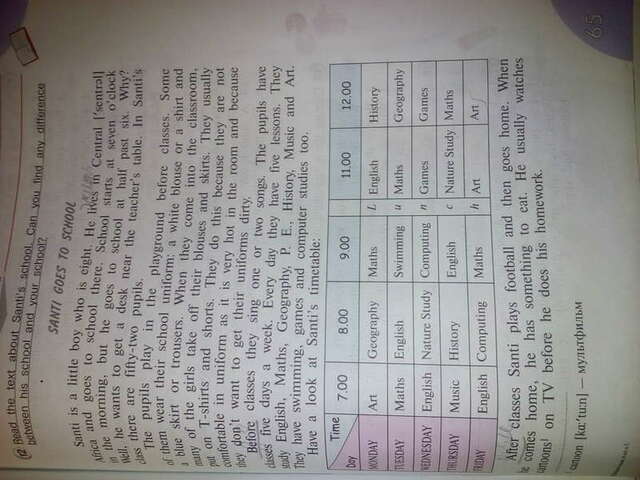 12 Read the text about Santi's school. Can you find any difference
between his school and your school?
SANTI GOES TO SCHOOL
Santi is a little boy who is eight. He lives in Central ['sentrəl]
Africa and goes to school there. School starts at seven o'clock
in the morning, but he goes to school at half past six. Why?
Well, he wants to get a desk near the teacher's table. In Santi's
class there are fifty-two pupils.
The pupils play in the playground before classes. Some
of them wear their school uniform: a white blouse or a shirt and
a blue skirt or trousers. When they come into the classroom,
many of the girls take off their blouses and skirts. They usually
put on T-shirts and shorts. They do this because they are not
comfortable in uniform as it is very hot in the room and because
they don't want to get their uniforms dirty.
Before classes they sing one or two songs. The pupils have
classes five days a week. Every day they have five lessons. They
study English, Maths, Geography, P. E., History, Music and Art.
They have swimming, games and computer studies too.
Have a look at Santi's timetable:
Time Day 7.00 8.00 9.00 11.00 12.00
MONDAY Art Geography Maths L English History
TUESDAY Maths English Swimming u Maths Geography
WEDNESDAY English Nature Study Computing n Games Games
THURSDAY Music History English c Nature Study Maths
FRIDAY English Computing Maths h Art Art
After classes Santi plays football and then goes home. When
he comes home, he has something to eat. He usually watches
cartoons¹ on TV before he does his homework.
cartoon [kɑː'tuːn] — мультфильм
65